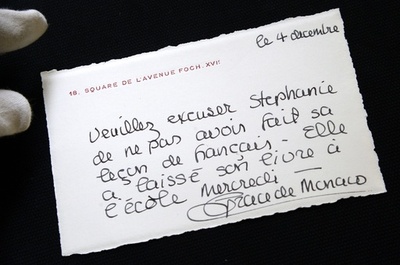 le 4 décembre
18, SQUARE DE L'AVENUE FOCH, XVIe
Veuillez excuser Stephanie
de ne pas avoir fait sa
leçon de français. Elle
a laissé son livre à
l'école mercredi —
Grace de Monaco